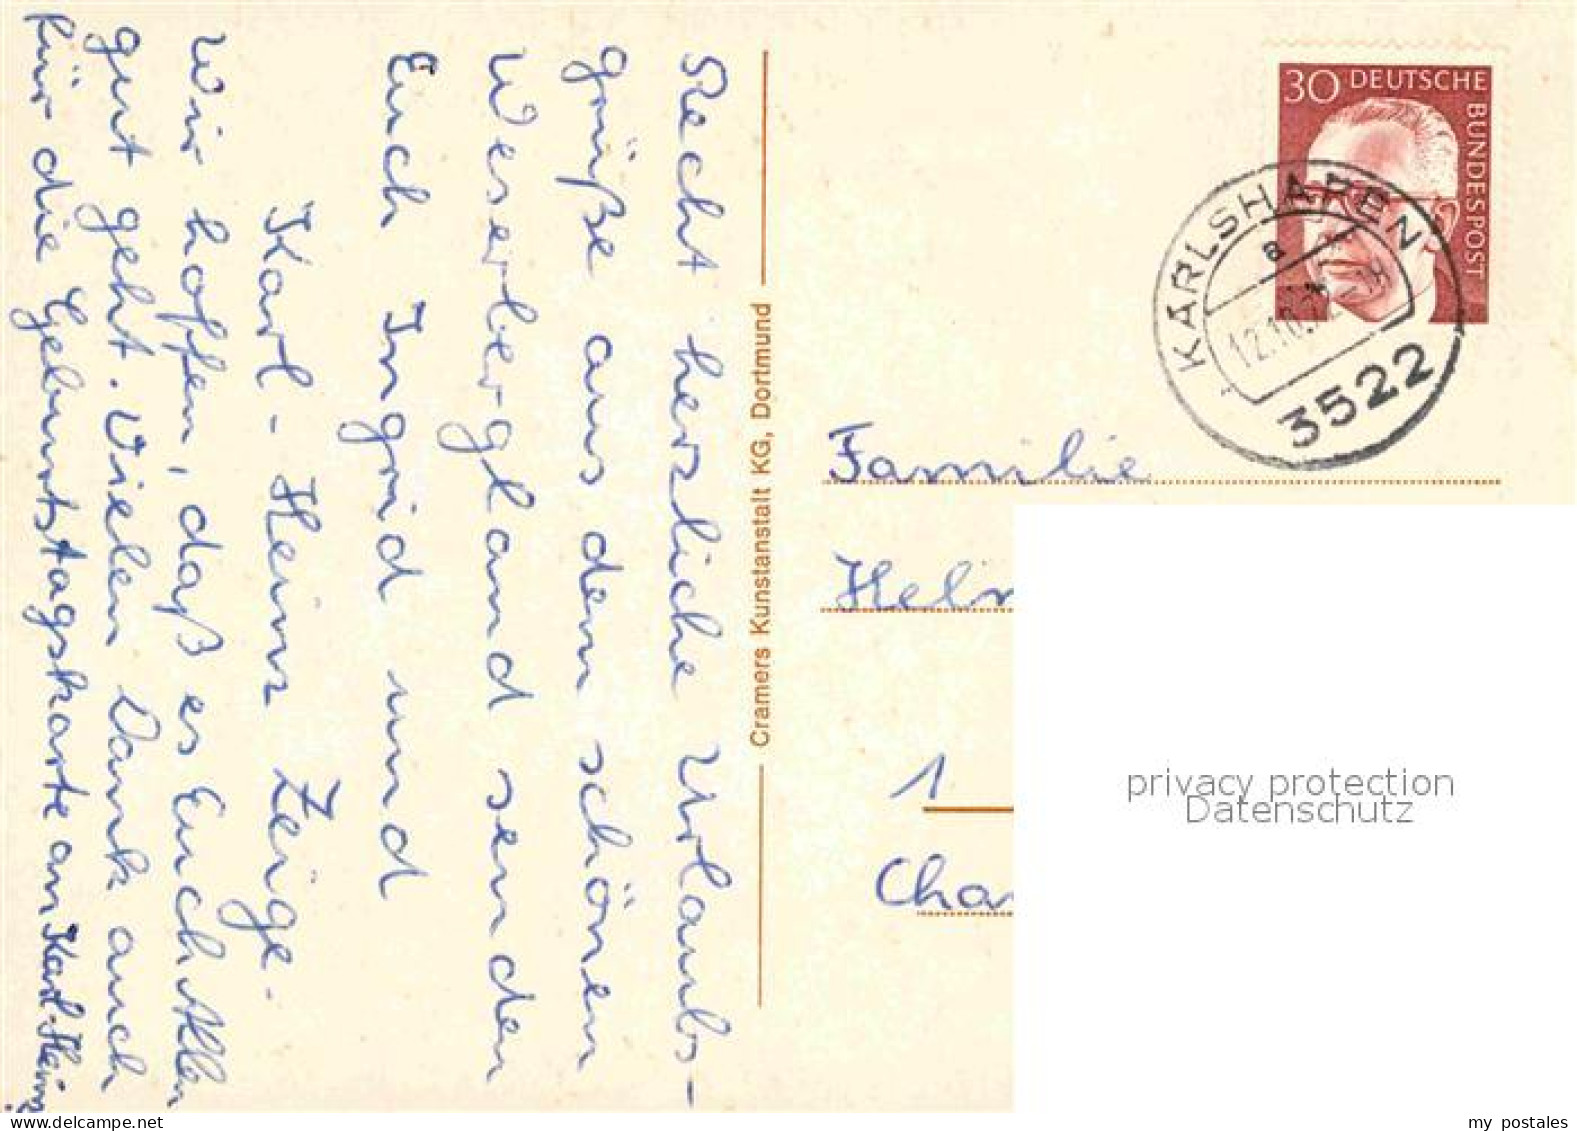 Recht herzliche Urlaubs-
grüße aus dem schönen
Weserbergland senden
Euch Ingrid und
Karl-Heinz Zeige.
Wir hoffen, daß es Euch Allen
gut geht. Vielen Dank auch
für die Geburtstagskarte an Karl-Heinz
Cramers Kunstanstalt KG, Dortmund
30 DEUTSCHE
BUNDESPOST
KARLSHAFEN
a
12.10.72
3522
Familie
Hel
1
Cha
privacy protection
Datenschutz
my postales